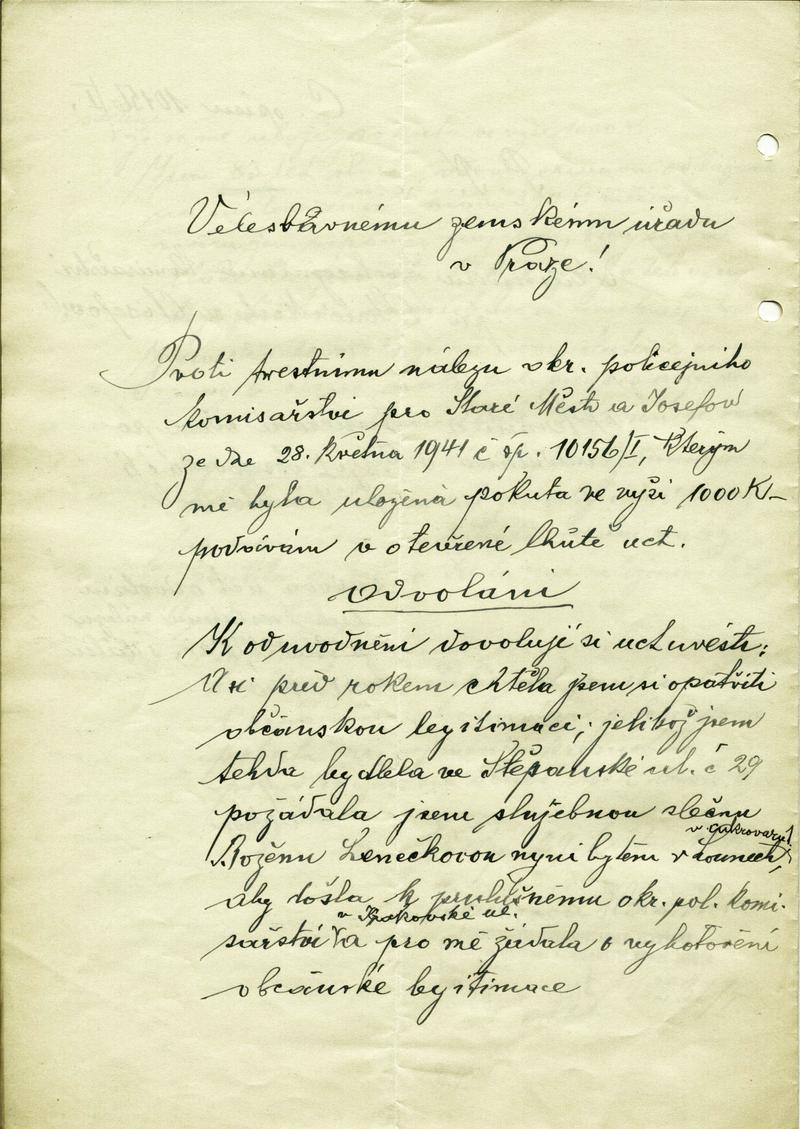 Veleslavnému zemskému úřadu
v Praze!
Proti trestnímu nálezu okr. policejního
komisařství pro Staré Město a Josefov
ze dne 28. května 1941 č sp. 10156/I, kterým
mě byla uložena pokuta ve výši 1000 K-
podávám v otevřené lhůtě uct.
odvolání
K odůvodnění dovoluji si uct uvésti:
Již před rokem chtěla jsem si opatřiti
občanskou legitimaci, jelikož jsem
tehda bydlela ve Štěpánské ul. č 29
požádala jsem služebnou slečnu
v cukrovaru
Boženu Lenečkovou nyní bytem v Lounech,
aby došla k příslušnému okr. pol. komi-
v Krakovské ul.
sařství a pro mě žádala o vyhotovení
občanské legitimace